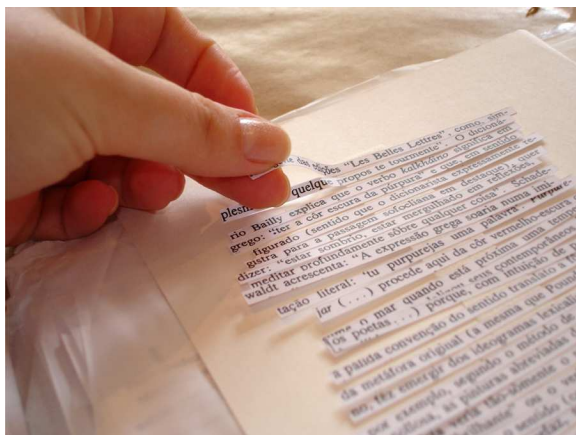 ções "Les Belles Lettres", como, sim-
plesm quelqu propos te tourmente". O dicioná-
rio Bailly explica que o verbo kalkháino significa em
grego: "ter a côr escura da púrpura e que em sentido
figurado (sentido que o dicionarista expressamente re-
gistra para a passagem sofocleana em destaque) quer
dizer: "estar sombrio, estar mergulhado em reflexões,
meditar profundamente sôbre qualquer coisa". Schade-
waldt acrescenta: "A expressão grega soaria numa imi-
tação literal: 'tu purpurejas uma palavra'. Purpure-
jar (...) procede aqui da côr vermelho-escura
o mar quando está próxima uma tempes
os poetas...) porque, com seus contemporâneos
intuição de
a pálida convenção do sentido translato a fôr
da metáfora original (a mesma que Pound
no, fêz emergir dos ideogramas lexicali
por exemplo, segundo o método de
as pinturas abreviadas
veria tão-sòmente o
ou o ve
o sentido (